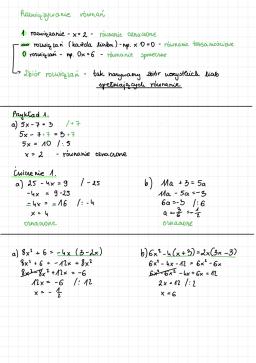 Rozwiązywanie równań
1 rozwiązanie - x = 2 - równanie oznaczone
∞ rozwiązań (każda liczba) - np. x·0=0 - równanie tożsamościowe
0 rozwiązań - np. 0x = 6 - równanie sprzeczne
Zbiór rozwiązań - tak nazywamy zbiór wszystkich liczb
spełniających równanie
Przykład 1.
a) 5x - 7 = 3 /+7
5x - 7 + 7 = 3 + 7
5x = 10 /:5
x = 2 - równanie oznaczone
Ćwiczenie 1.
a) 25 - 4x = 9 /-25
-4x = 9 - 25
-4x = -16 /:-4
x = 4
oznaczone
b) 11a + 3 = 5a
11a - 5a = -3
6a = -3 /:6
oznaczone
a) 8x² + 6 = -4x (3-2x)
8x² + 6 = -12x + 8x²
8x² - 8x² + 12x = -6
12x = -6 /:12
x = - 1/2
b) 6x² - 4(x+3) = 2x(3x-3)
6x² - 4x - 12 = 6x² - 6x
6x² - 6x² - 4x + 6x = 12
2x = 12 /:2
x = 6